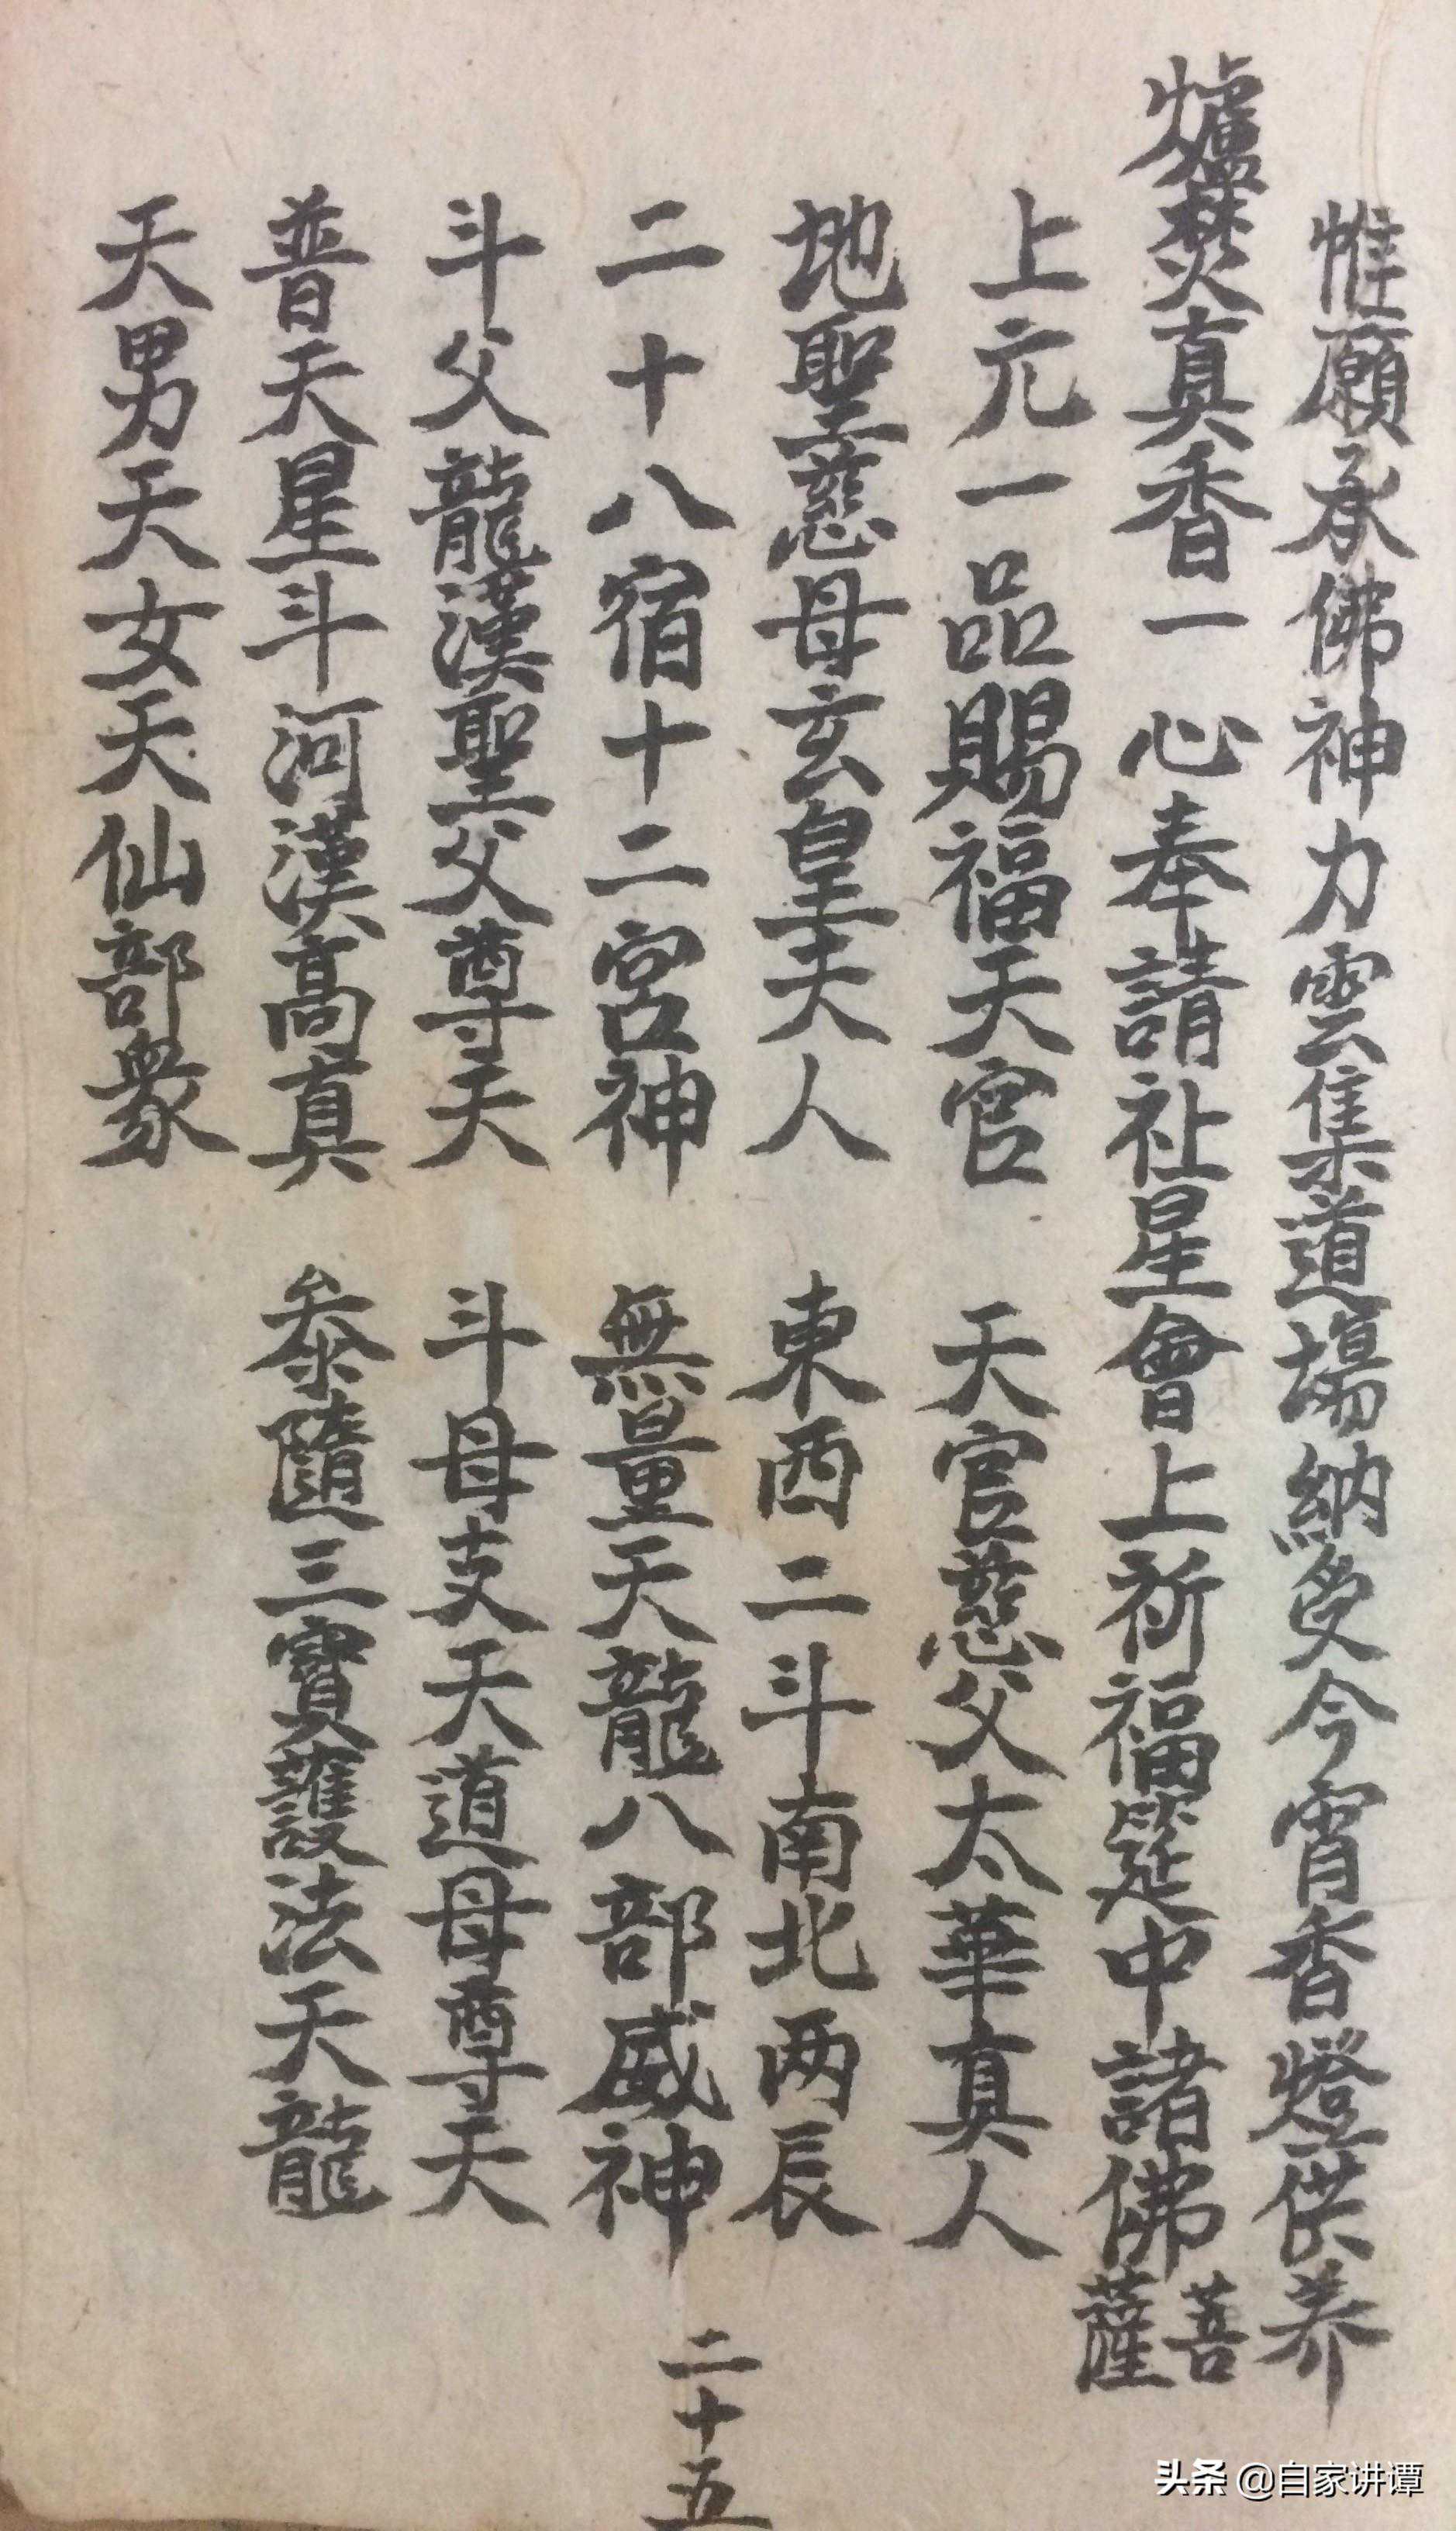 惟願承佛神力雲集道場納受今宵香燈供养
爐焚真香一心奉請祉星會上祈福筵中諸佛菩薩
上元一品賜福天官　天官慈父太華真人
地聖慈母玄皇夫人　東西二斗南北两辰
二十八宿十二宮神　無量天龍八部威神
斗父龍漢聖父尊天　斗母支天道母尊天
普天星斗河漢高真　叅隨三寶護法天龍
天男天女天仙部衆
二十五
头条 @自家讲谭